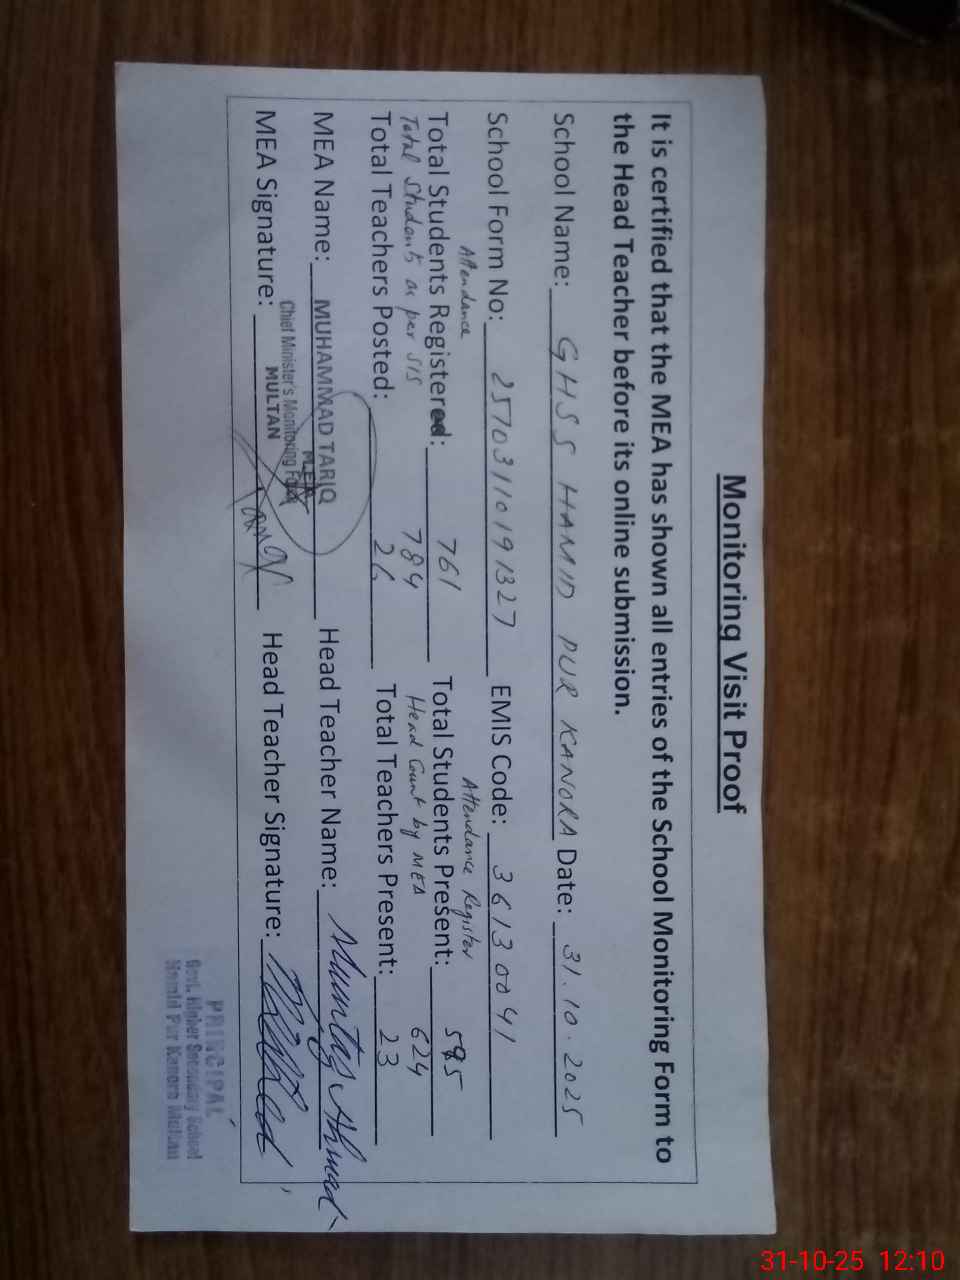 Monitoring Visit Proof
It is certified that the MEA has shown all entries of the School Monitoring Form to
the Head Teacher before its online submission.
School Name: GHSS HAMID PUR KANORA Date: 31.10.2025
School Form No: 25703110191327 EMIS Code: 36130041
Attendance Attendance Register
Total Students Registered: 761 Total Students Present: 595
Total Students as per SIS 784 Head Count by MEA 624
Total Teachers Posted: 26 Total Teachers Present: 23
MEA Name: MUHAMMAD TARIQ Head Teacher Name: Mumtaz Ahmad
MEA
Chief Minister's Monitoring Force
MULTAN
MEA Signature: Head Teacher Signature:
PRINCIPAL
Govt. Higher Secondary School
Hamid Pur Kanora Multan
31-10-25 12:10